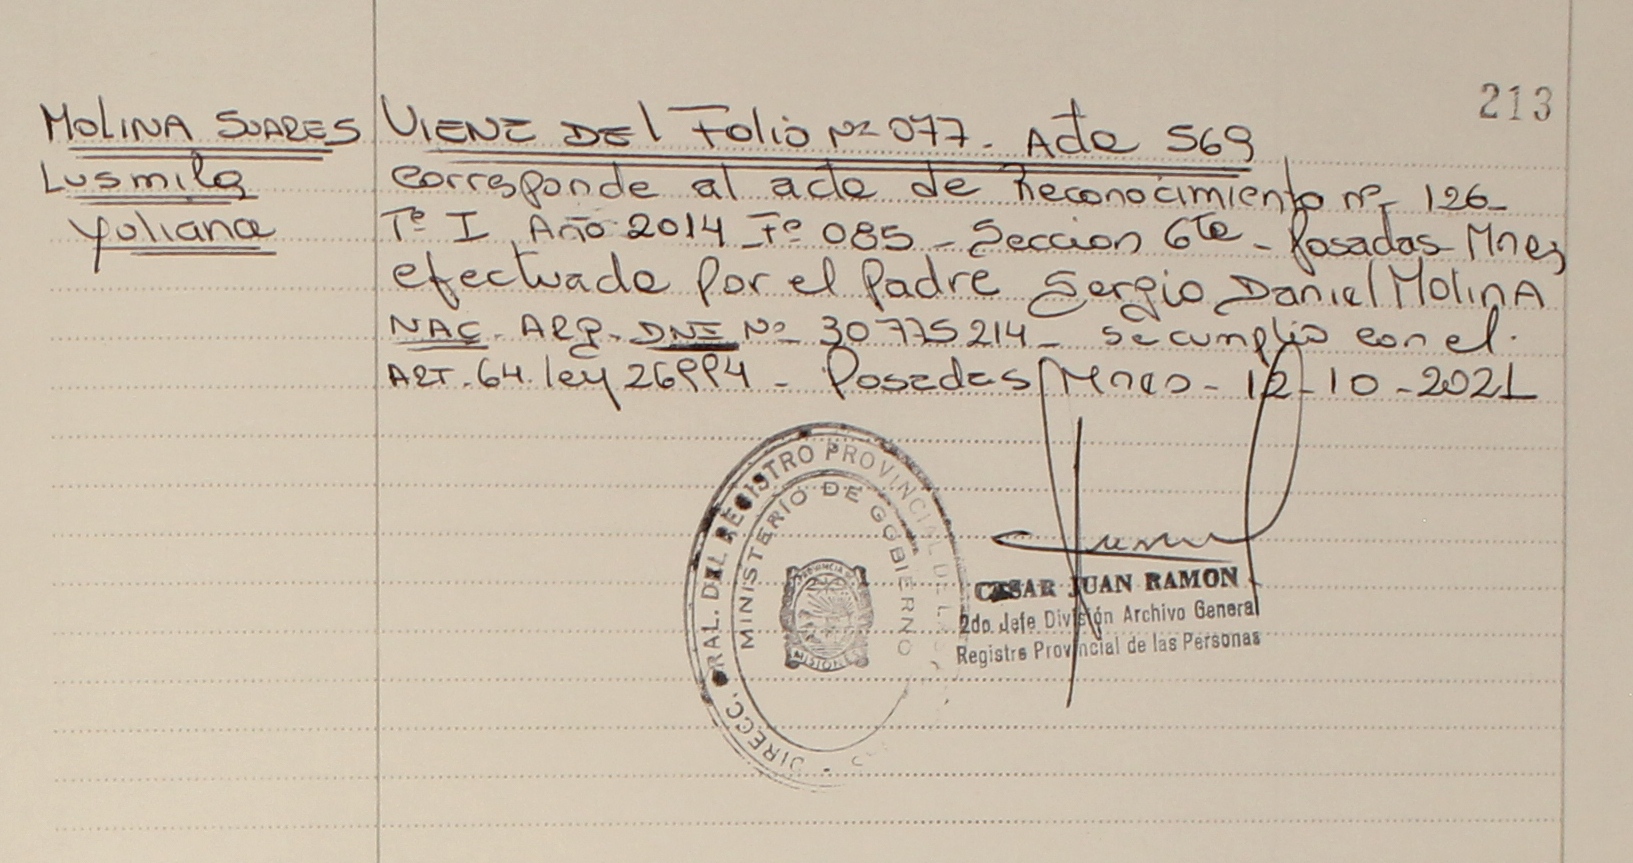 213
MOLINA SUARES
Lusmila
Yuliana
VIENE DEL Folio Nº 077. Acta 569
corresponde al acta de Reconocimiento nº 126-
Tº I Año 2014 Fº 085 - Seccion 6ta - Posadas Mnes
efectuada por el Padre Sergio Daniel MOLINA
NAC. ARG. DNI Nº 30775214 - se cumplio con el.
ART. 64. ley 26994 - Posadas Mnes - 12-10-2021
DIRECC. GRAL. DEL REGISTRO PROVINCIAL DE LAS
MINISTERIO DE GOBIERNO
PROVINCIA DE
MISIONES
CESAR JUAN RAMON
2do. Jefe División Archivo General
Registro Provincial de las Personas